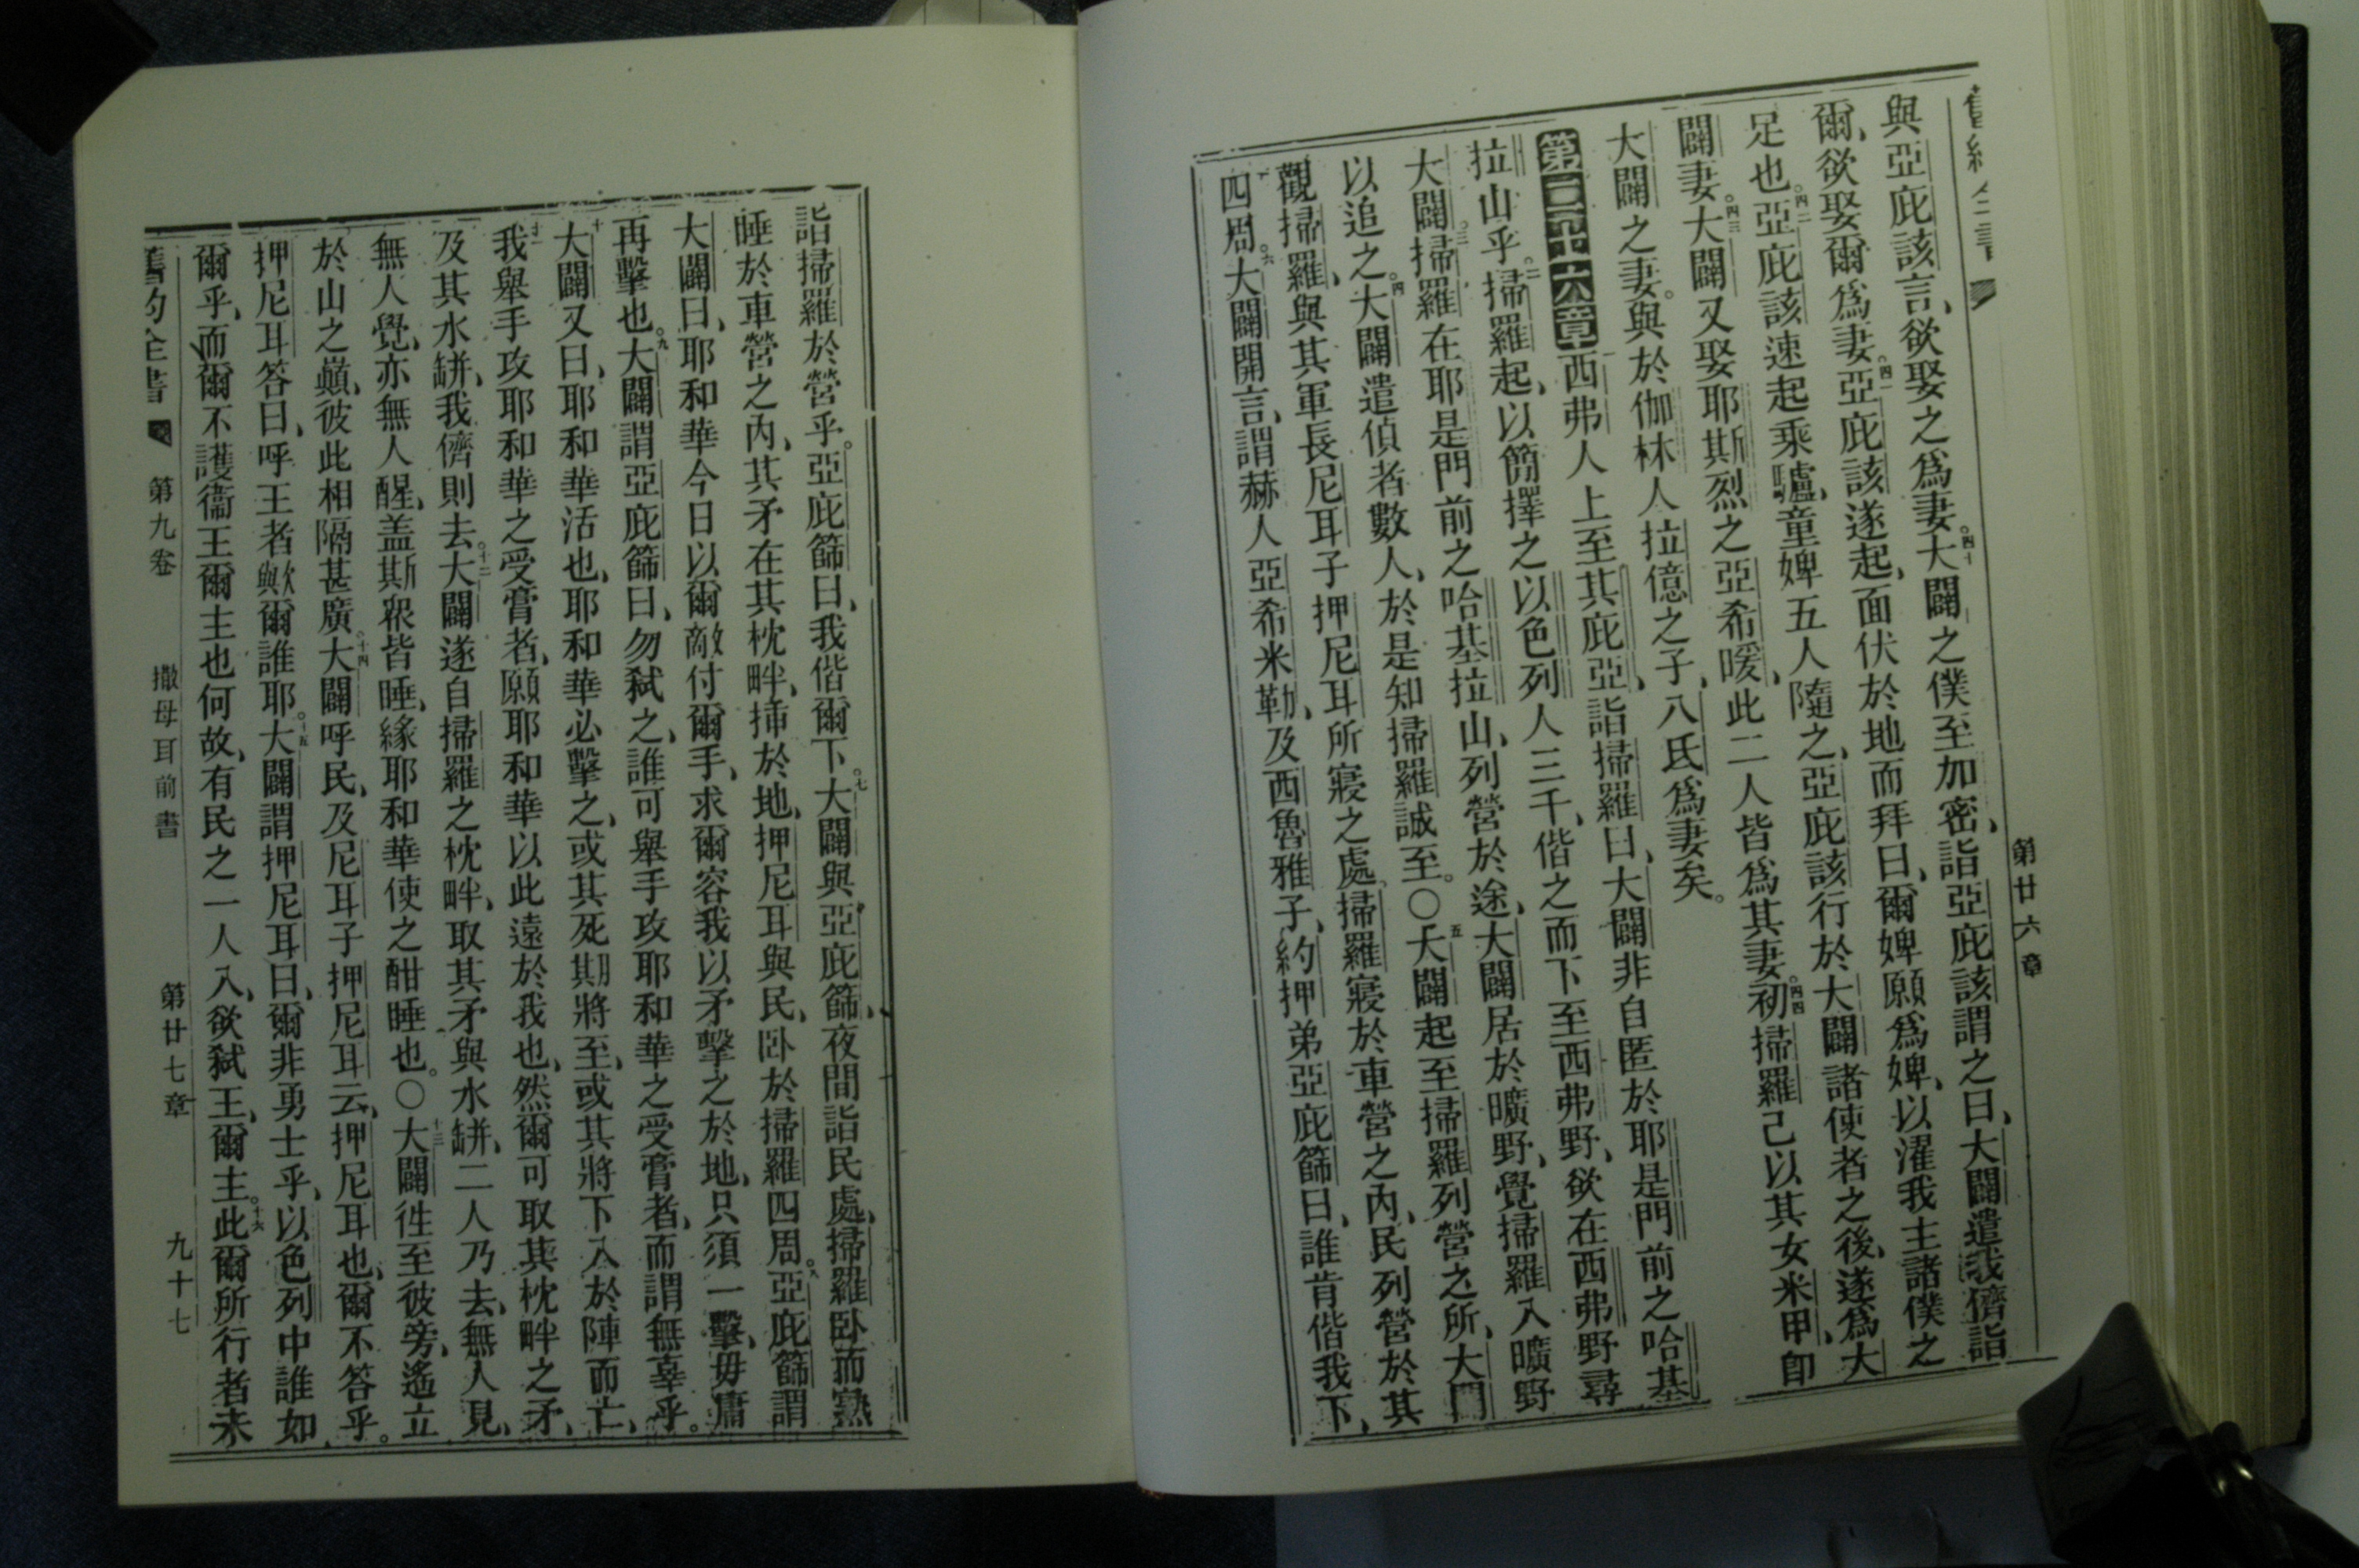 第廿六章
與亞庇該言、欲娶之爲妻。四十大闢之僕至加密、詣亞庇該謂之曰、大闢遣我儕詣
爾、欲娶爾爲妻。四一亞庇該遂起、面伏於地而拜曰、爾婢願爲婢、以濯我主諸僕之
足也。四二亞庇該速起乘驢、童婢五人隨之、亞庇該行於大闢諸使者之後、遂爲大
闢妻。四三大闢又娶耶斯烈之亞希暖、此二人皆爲其妻。四四初掃羅己以其女米甲、卽
大闢之妻。與於伽林人拉億之子、八氏爲妻矣。
第二十六章 一西弗人上至其庇亞、詣掃羅曰、大闢非自匿於耶是門前之哈基
拉山乎。二掃羅起、以簡擇之以色列人三千、偕之而下至西弗野、欲在西弗野尋
大闢。三掃羅在耶是門前之哈基拉山、列營於途、大闢居於曠野、覺掃羅入曠野
以追之。四大闢遣偵者數人、於是知掃羅誠至。〇五大闢起至掃羅列營之所、大闢
觀掃羅、與其軍長尼耳子押尼耳所寢之處。掃羅寢於車營之內、民列營於其
四周。六大闢開言、謂赫人亞希米勒、及西魯雅子、約押弟亞庇篩曰、誰肯偕我下、
詣掃羅於營乎。亞庇篩曰、我偕爾下。七大闢與亞庇篩、夜間詣民處、掃羅卧而熟
睡於車營之內、其矛在其枕畔、揷於地、押尼耳與民、卧於掃羅四周。八亞庇篩謂
大闢曰、耶和華今日以爾敵付爾手、求爾容我以矛擊之於地、只須一擊、毋庸
再擊也。九大闢謂亞庇篩曰、勿弑之、誰可舉手攻耶和華之受膏者、而謂無辜乎。
十大闢又曰、耶和華活也、耶和華必擊之、或其死期將至、或其將下入於陣而亡、
十一我舉手攻耶和華之受膏者、願耶和華以此遠於我也、然爾可取其枕畔之矛、
及其水缾、我儕則去。十二大闢遂自掃羅之枕畔、取其矛與水缾、二人乃去、無人見、
無人覺、亦無人醒、盖斯衆皆睡、緣耶和華使之酣睡也。〇十三大闢徃至彼旁、遙立
於山之巔、彼此相隔甚廣。十四大闢呼民、及尼耳子押尼耳云、押尼耳也、爾不答乎。
押尼耳答曰、呼王者歟與爾誰耶。十五大闢謂押尼耳曰、爾非勇士乎、以色列中誰如
爾乎、而爾不護衞王爾主也何故、有民之一人入、欲弑王、爾主。十六此爾所行者未
舊約全書 第九卷 撒母耳前書 第廿七章 九十七